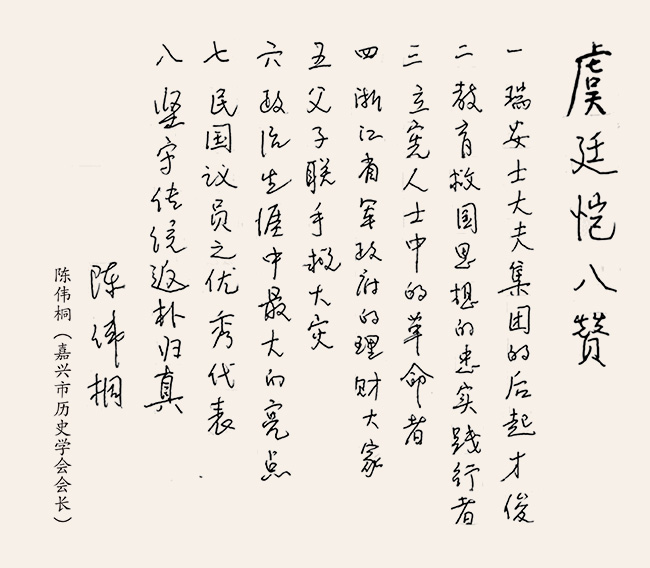 虞廷恺八赞
一 瑞安士大夫集团的后起才俊
二 教育救国思想的忠实践行者
三 立宪人士中的革命者
四 浙江省军政府的理财大家
五 父子联手救大灾
六 政治生涯中最大的亮点
七 民国议员之优秀代表
八 坚守传统返朴归真
陈伟桐
陈伟桐（嘉兴市历史学会会长）